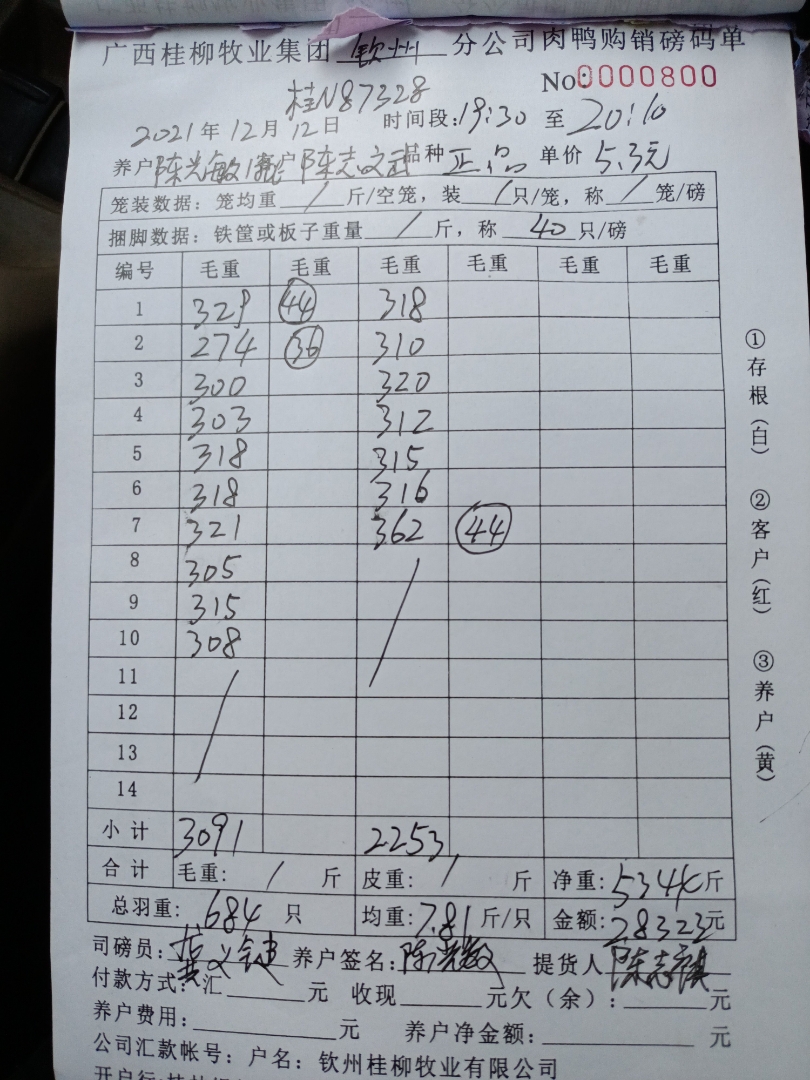 广西桂柳牧业集团 钦州 分公司肉鸭购销磅码单
No:0000800
桂N87328
2021年12月12日 时间段:19:30 至 20:10
养户陈光敏 户陈志文武品种 正品 单价 5.3元
笼装数据：笼均重 / 斤/空笼，装 / 只/笼，称 / 笼/磅
捆脚数据：铁筐或板子重量 / 斤，称 40 只/磅
编号 毛重 毛重 毛重 毛重 毛重 毛重
1 329 44 318
2 274 36 310
3 300 320
4 303 312
5 318 315
6 318 316
7 321 362 44
8 305
9 315
10 308
11
12
13
14
小计 3091 2253
合计 毛重: / 斤 皮重: / 斤 净重: 5344斤
总羽重: 684 只 均重: 7.81斤/只 金额: 28323元
司磅员: 养户签名: 提货人
付款方式：汇 元 收现 元欠（余）: 元
养户费用: 元 养户净金额: 元
公司汇款帐号：户名：钦州桂柳牧业有限公司
①存根(白) ②客户(红) ③养户(黄)